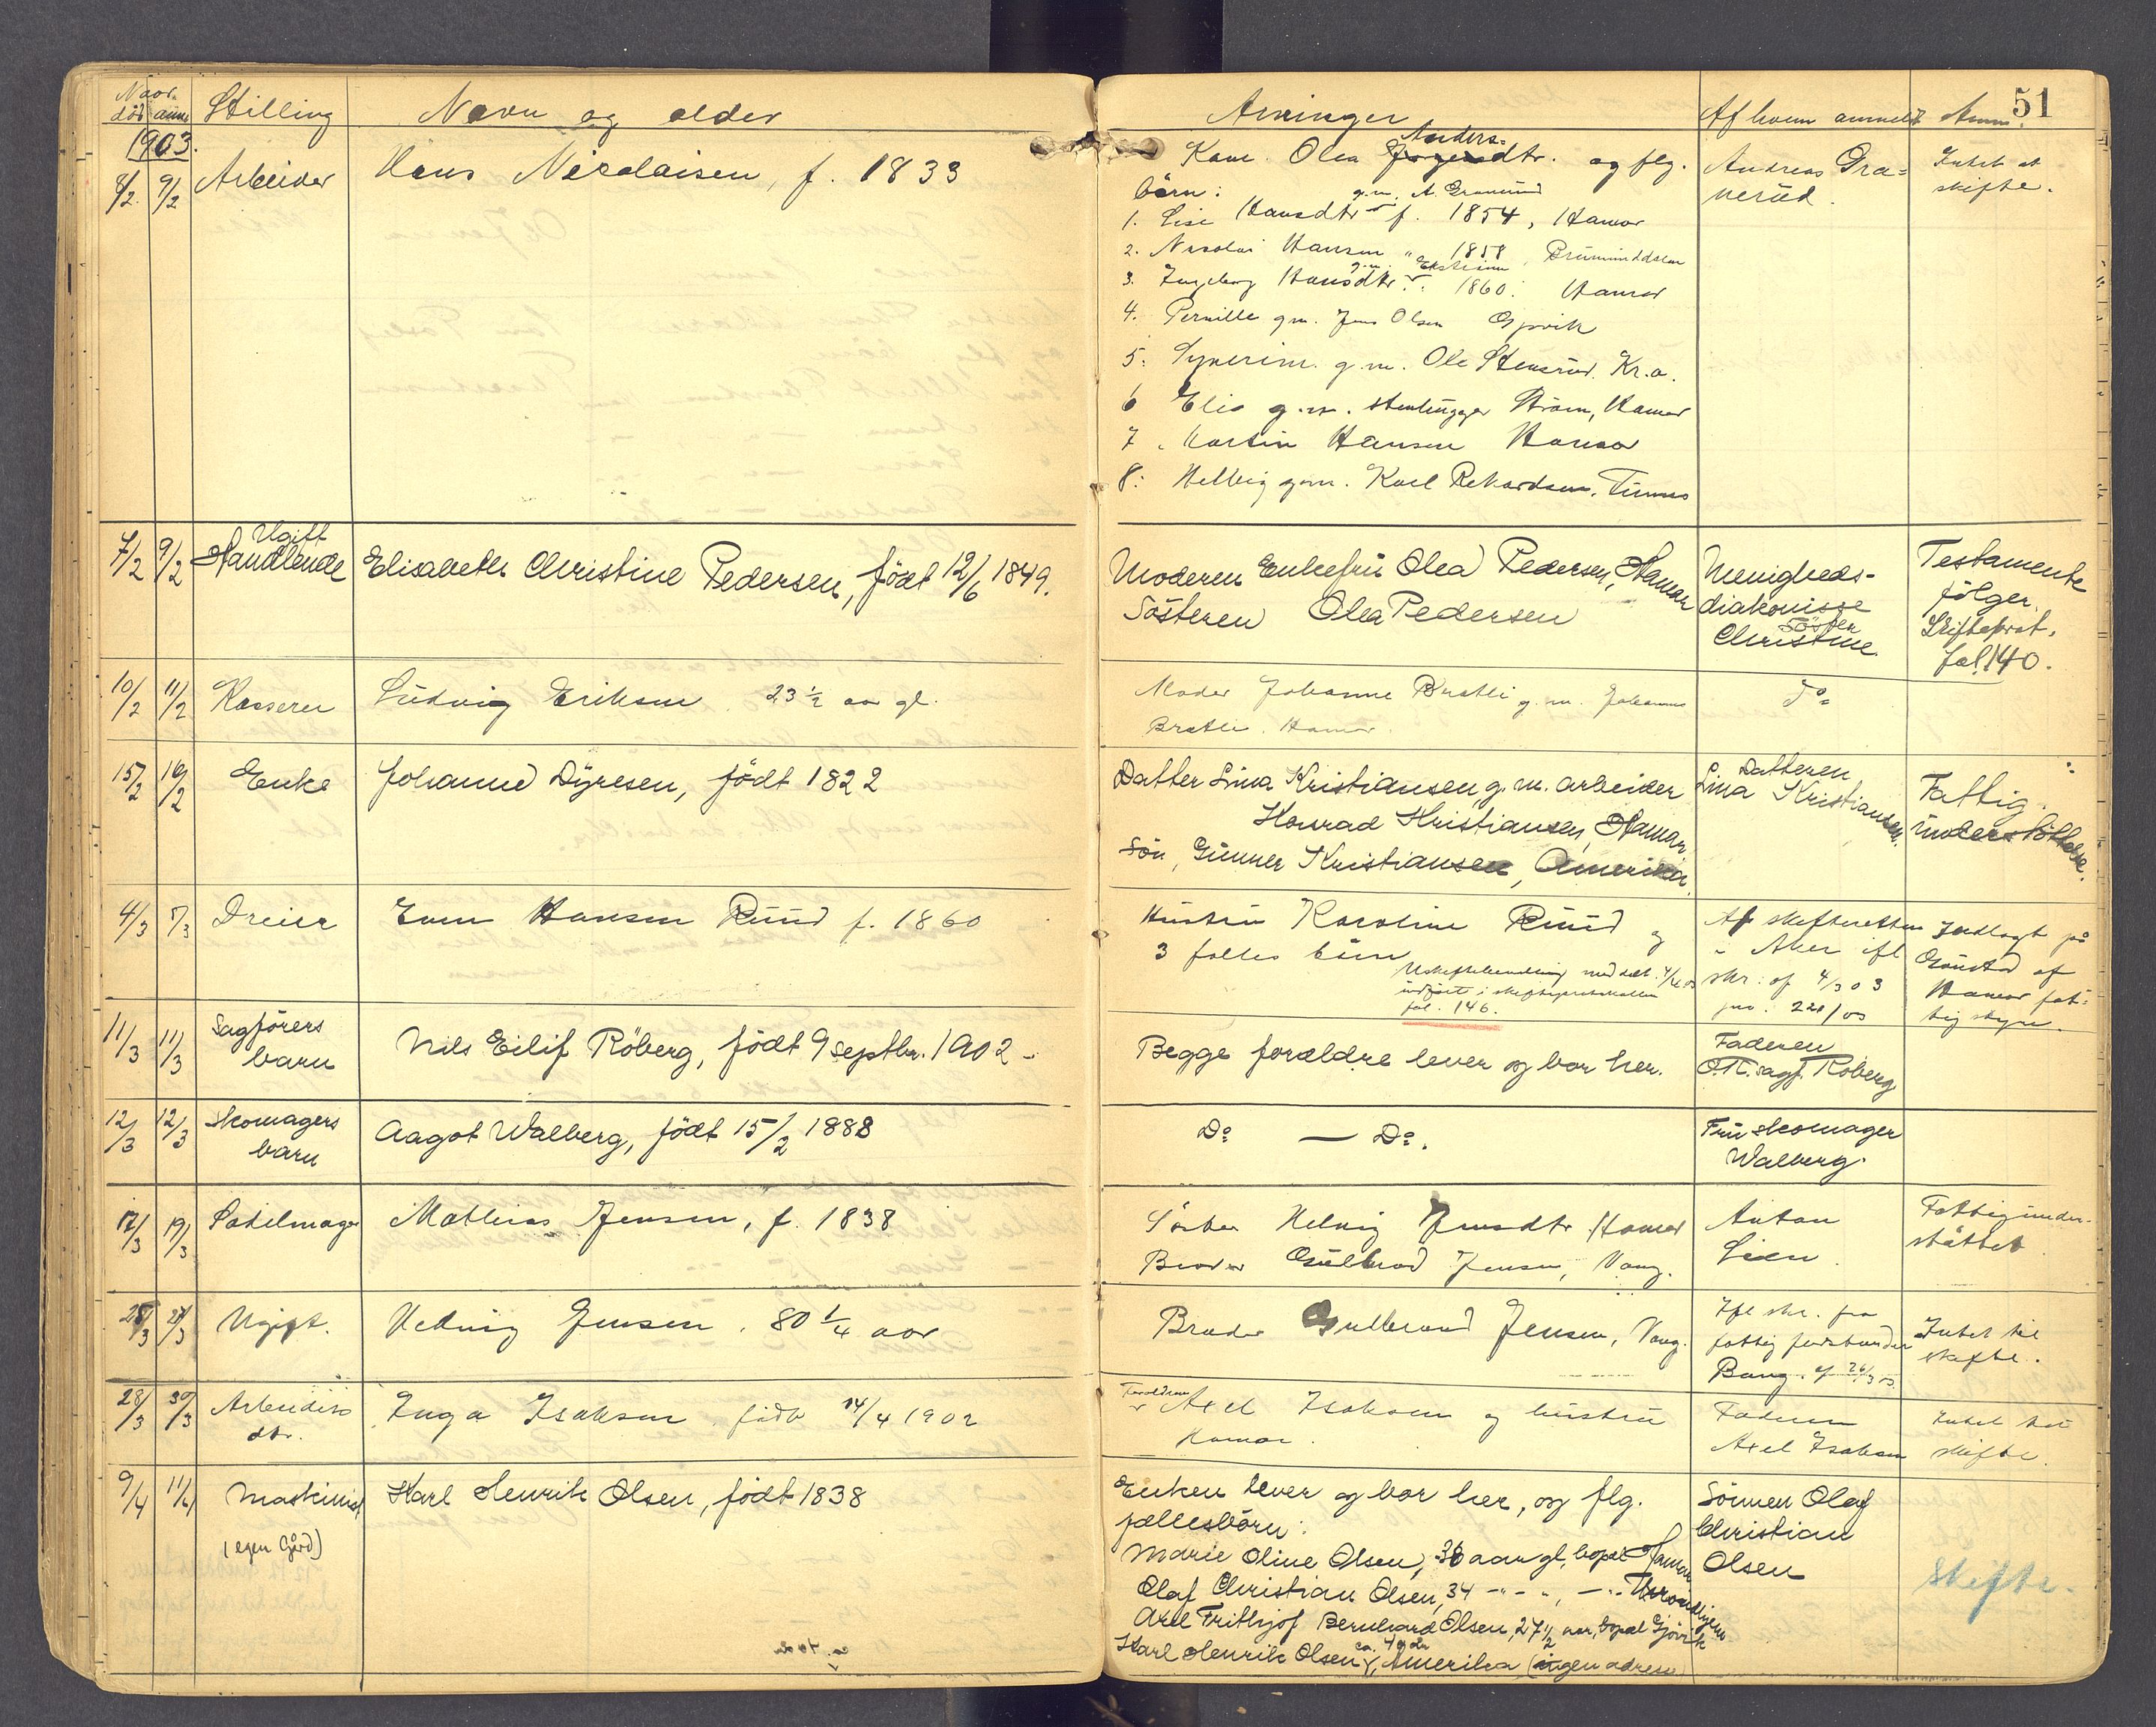 51
Naar
död anm. Stilling Navn og alder Arvinger Af hvem anmeldt Anm.
1903.
8/2. 9/2 Arbeider Hans Nicolaisen, f. 1833
Kone Olea Andersdtr. og flg.
börn:
1. Lise Hansdtr g.m. A. Granerud f. 1854, Hamar
2. Nicolai Hansen " 1858 Brumunddalen
3. Ingeborg Hansdtr g.m. 1860. Hamar
4. Pernille g.m. Jens Olsen Gjøvik
5. g.m. Ole Stensrud. Kr.a.
6 g.m. Ström, Hamar
7. Martin Hansen Hamar
8: Helvig g.m. Karl
Andreas Gra=
nerud.
Intet at
skifte.
7/2 9/2 Ugift
Handlende Elisabeth Christine Pedersen, födt 12/6 1849.
Moderen Enkefru Olea Pedersen, Hamar
Søsteren Olea Pedersen
Menigheds-
diakonisse
Søster
Christine
Testamente
følger.
Skifteprot.
fol. 140.
10/2 11/2 Kasserer Ludvig Eriksen 23 1/2 aar gl.
Moder Johanne Bratli g.m. Johannes
Bratli. Hamar.
Do
15/2 16/2 Enke Johanne Dyresen, födt 1822
Datter Lina Kristiansen g.m. arbeider
Konrad Kristiansen, Hamar.
Sön, Gunner Kristiansen, Amerika.
Datteren
Lina Kristiansen.
Fattig-
understöttelse.
4/3 7/3 Dreier Even Hansen Ruud f. 1860
Hustru Karoline Ruud og
3 fælles börn
indført i skifteprotokollen
fol. 146.
Af skifteretten
i Aker ifl
skr. af 4/3 03
jno. 221/03
Indlagt på
Gaustad af
Hamar fat-
tigstyre.
11/3 11/3 Sagförers
barn Nils Eilif Röberg, födt 9 septbr. 1902
Begge forældre lever og bor her.
Faderen
O.R.sagf. Röberg
12/3 12/3 Skomagers
barn Aagot Walberg, födt 15/2 1888
Do — Do.
Fru skomager
Walberg.
17/3 19/3 Sadelmager Mathias Jensen, f. 1838
Söster Helvig Jensdtr Hamar
Broder Gulbrand Jensen, Vang.
Anton
Lien.
Fattigunder-
støttet
25/3 27/3 Ugift. Helvig Jensen. 80 1/4 aar
Broder Gulbrand Jensen, Vang.
Ifl skr. fra
fattigforstander
Bang. af 26/3 03
Intet til
skifte.
28/3 30/3 Arbeiders
dtr. Inga Isaksen födt 14/4 1902
Forældrene
Axel Isaksen og hustru
Hamar.
Faderen
Axel Isaksen
Intet til
skifte.
9/4 11/4 Maskinist
(egen Gård) Karl Henrik Olsen, födt 1838
Enken lever og bor her, og flg.
fællesbörn:
Marie Oline Olsen, 36 aar gl, bopæl Hamar
Olaf Christian Olsen, 34 -"- ", -". Throndhjem
Axel Frithjof Bernhard Olsen, 27 1/2 aar, bopæl Gjövik
Karl Henrik Olsen, ca. 40 år Amerika (ingen adresse)
Sönnen Olaf
Christian
Olsen
Skifte.